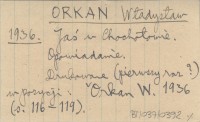 ORKAN Władysław
1936. Jaś w Chochołowie.
Opowiadanie.
Drukowane (pierwszy raz?)
w pozycji: Orkan W. 1936
(s. 116-119).